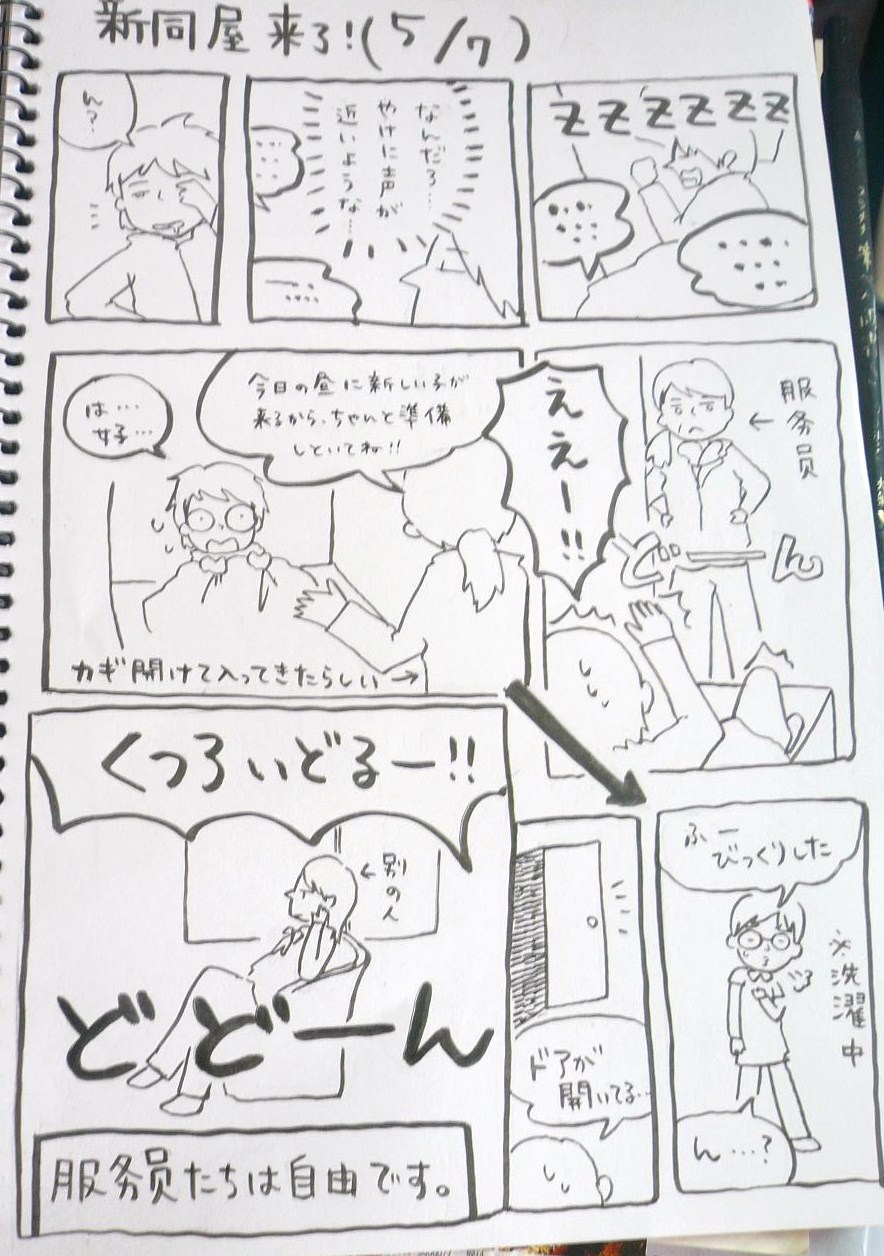 新同屋来了!(5/7)
ZZZZZZ
なんだろ…
やけに声が
近いような…
ん?
服务员
どーん
ええー!!
今日の昼に新しい子が
来るから、ちゃんと準備
しといてね!!
は…
女子…
カギ開けて入ってきたらしい→
ふー
びっくりした
※洗濯中
ん…?
ドアが
開いてる…
くつろいどるー!!
别の人
どどーん
服务员たちは自由です。